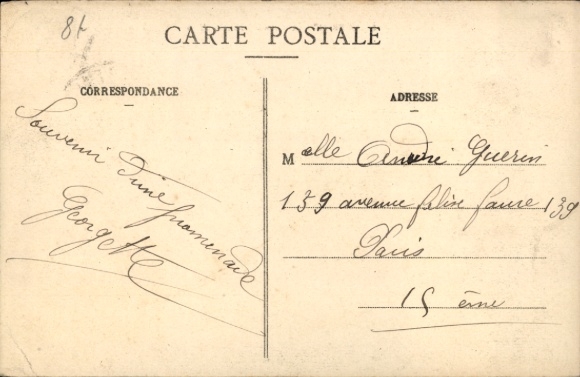 8f
CARTE POSTALE
CORRESPONDANCE
Souvenir d'une
promenade
Georgette
ADRESSE
Melle Andrée Guerin
139 avenue felix faure 139
Paris
15 ème